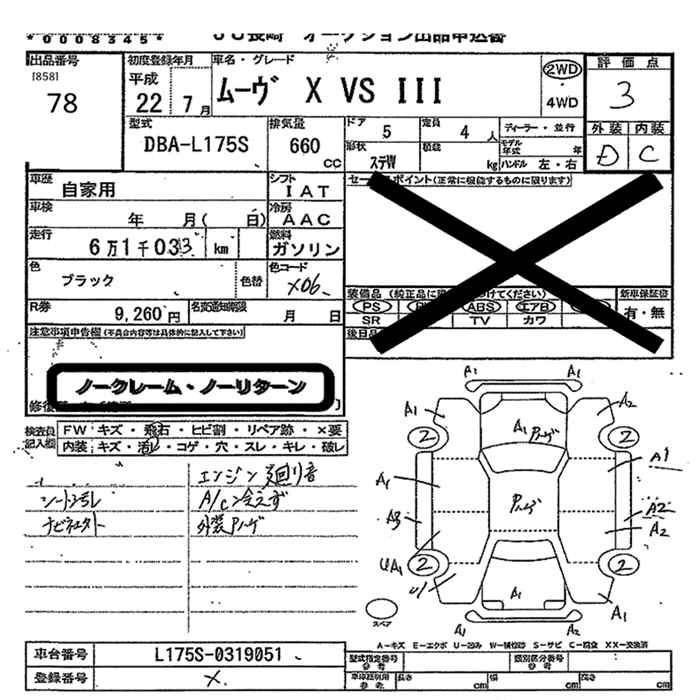 *0008345*
ＪＵ長崎 オークション出品申込書
出品番号 初度登録年月 車名・グレード 評価点
[858]
78
平成
22 7月
ムーヴ X VS III
2WD
4WD
3
型式 排気量 ドア 5 定員 4人 ディーラー・並行 外装 内装
DBA-L175S 660 CC
形状 ステW 積載 kg
モデル年式 年
ハンドル 左・右
D C
車歴 自家用 シフト IAT
セールスポイント(正常に機能するものに限ります)
車検 年 月( 日) 冷房 AAC
走行 6万1千033 km 燃料 ガソリン
色 ブラック 色替 色コード X06
装備品 (純正品に限 けてください) 新車保証書
PS ABS エアB 有・無
SR TV カワ
R券 9,260円 名変通知期限 月 日
後日品
注意事項申告欄(不具合内容等は具体的に記入して下さい)
ノークレーム・ノーリターン
検査員記入欄
FW キズ・飛石・ヒビ割・リペア跡・×要
内装 キズ・汚レ・コゲ・穴・スレ・キレ・破レ
エンジン廻り音
シート汚レ A/C冷えず
ナビモニター 外装ハゲ
A1 A1
A1 A2
A1 ハゲ
2 2
A1 A1
ハゲ
A3 A2
A2
UA1
2 2
U1 A1 A1
スペア
A2 A1
A-キズ E-エクボ U-凹み W-補修跡 S-サビ C-腐食 XX-交換済
車台番号 L175S-0319051
型式指定番号 参考 類別区分番号 参考
登録番号 ×
車庫証明用 参考 長さ cm 幅 cm 高さ cm